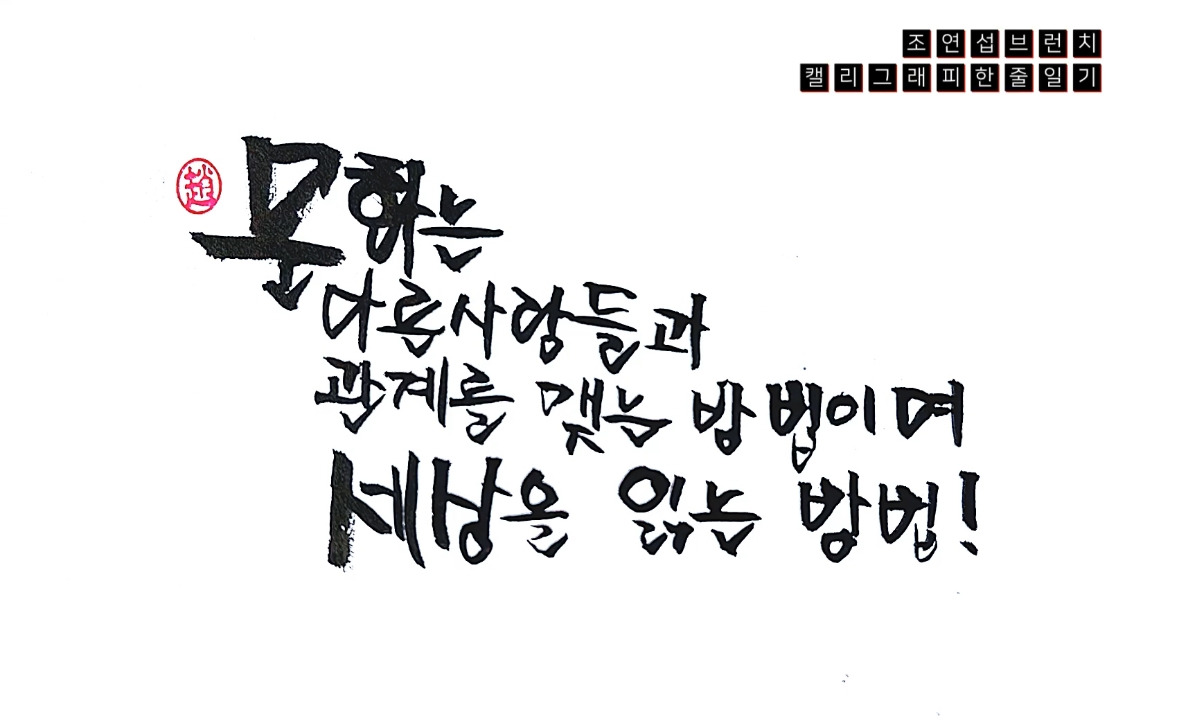 조연섭브런치
캘리그래피한줄일기
趙
문화는
다른사람들과
관계를 맺는 방법이며
세상을 읽는 방법!